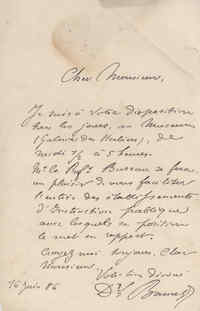 Cher Monsieur,
Je suis à votre disposition
tous les jours, au Museum
(Galerie des Herbiers), de
midi ½ à 5 heures.
Mr le Profr Bureau se fera
un plaisir de vous faciliter
l'entrée des établissements
d'Instruction publique
avec lesquels sa position
le met en rapport.
Croyez moi toujours, Cher
Monsieur,
Votre bien dévoué
Dr
16 Juin 86